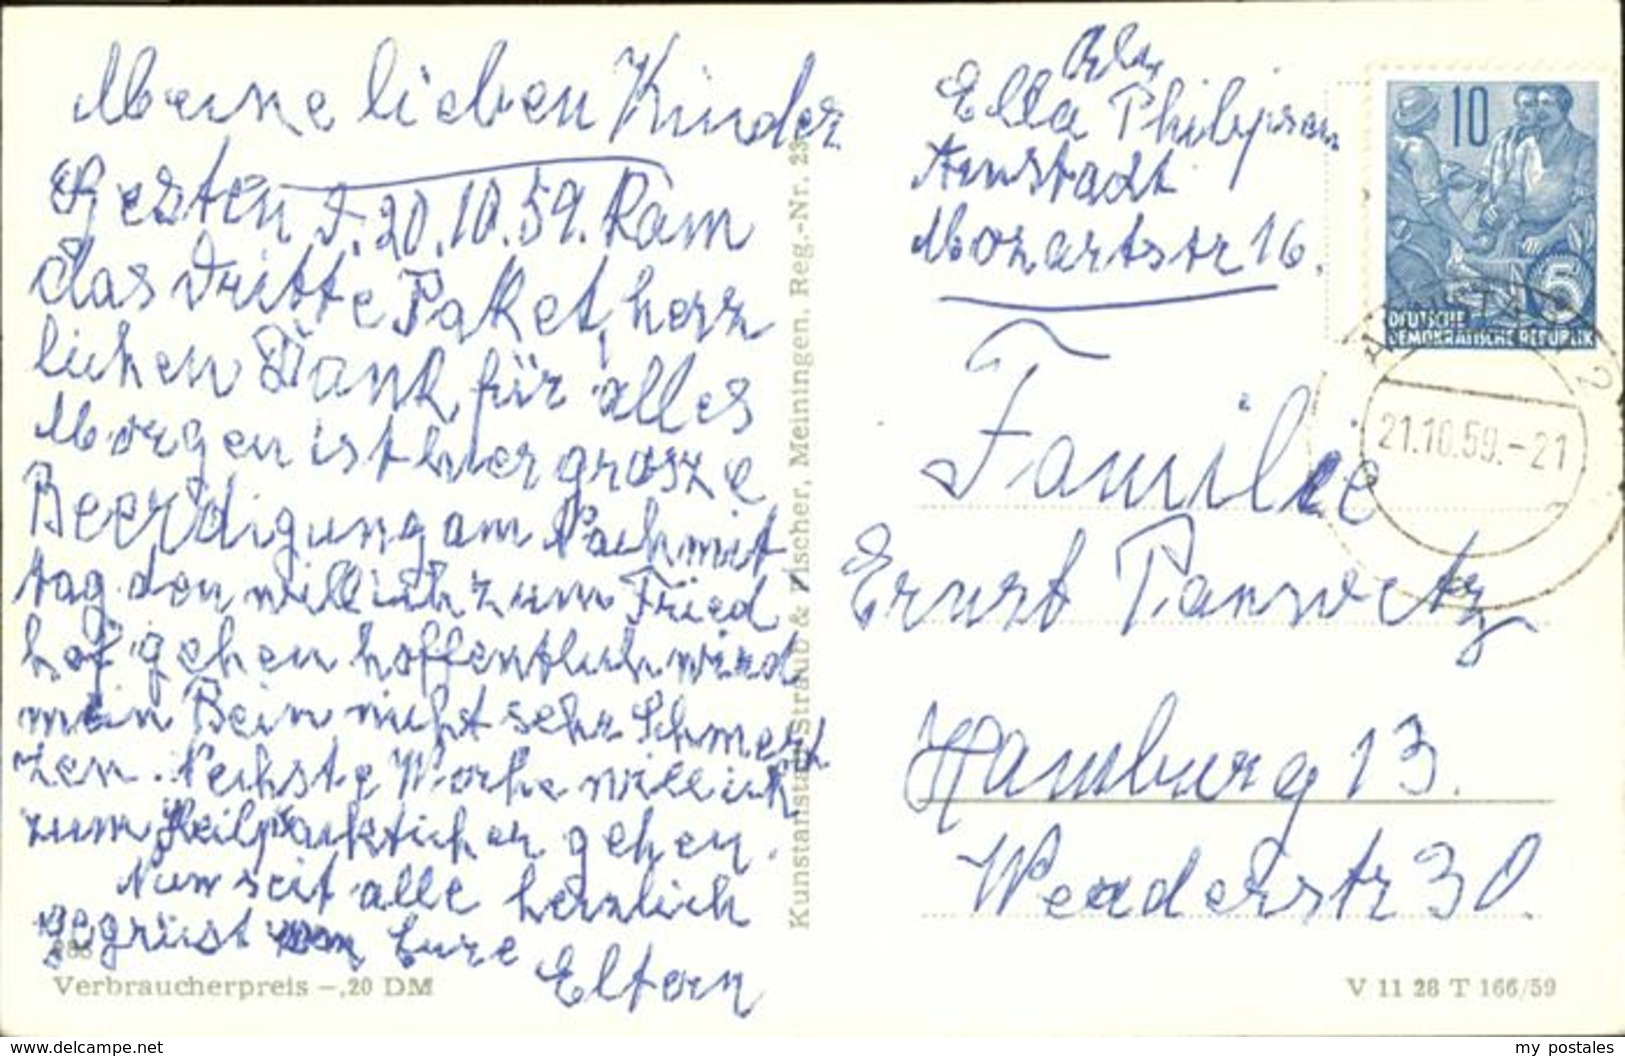 Meine lieben Kinder
Gestern d. 20.10.59. kam
das dritte Paket, herz
lichen Dank für alles
Morgen ist hier grosze
Beerdigung am Nachmit
tag den will ich zum Fried
hof gehen hoffentlich wird
mein Bein nicht sehr Schmert
zen. Nechste Woche will ich
zum Heilprakticher gehen.
Nun seit alle herzlich
gegrüst von Eure
Eltern
Verbraucherpreis -,20 DM
Kunstanstalt Straub & Fischer, Meiningen, Reg.-Nr.
Abs.
Ella Philipsen
Arnstadt
Mozartstr 16.
10
5
DEUTSCHE
DEMOKRATISCHE REPUBLIK
21.10.59.-21
Familie
Ernst Panwitz
Hamburg 13.
Str 30.
V 11 28 T 166/59
delcampe.net
my_postales